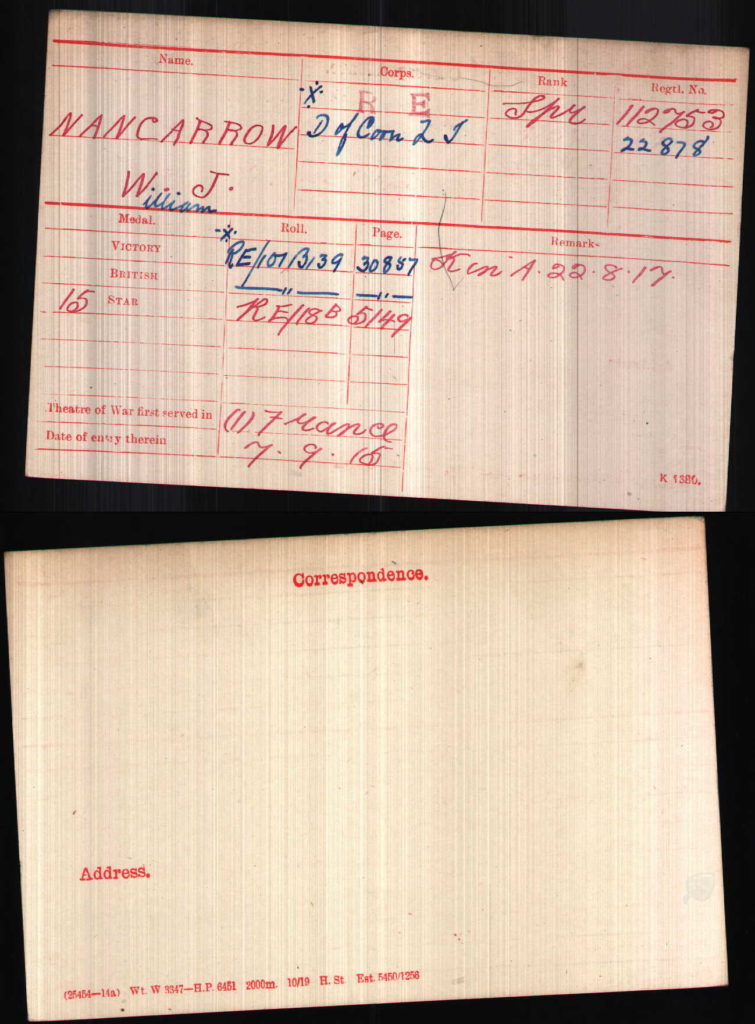 Name. Corps. Rank Regtl. No.
R E Spr 112753
NANCARROW D of Corn L I 22878
W. J.
illiam
Medal. Roll. Page. Remarks
VICTORY RE/101B139 30857 K in A. 22.8.17.
BRITISH —„— —„—
15 STAR RE/18B 5149
Theatre of War first served in (1) France
Date of entry therein 7.9.15
K 1380.
Correspondence.
Address.
(25454—14a) Wt. W 3347—H.P. 6451 2000m. 10/19 H. St. Est. 5450/1256